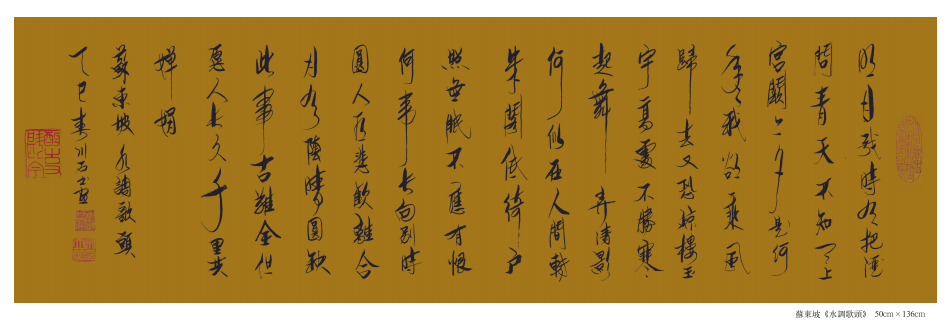 明月幾時有把酒
問青天不知天上
宮闕今夕是何
年我欲乘風
歸去又恐瓊樓玉
宇高處不勝寒
起舞弄清影
何似在人間轉
朱閣低綺戶
照無眠不應有恨
何事長向別時
圓人有悲歡離合
月有陰晴圓缺
此事古難全但
願人長久千里共
嬋娟
蘇東坡水調歌頭
巳春
蘇東坡《水調歌頭》 50cm×136cm